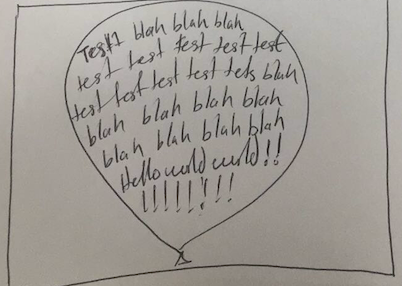 Test1 blah blah blah
test test test test test
test test test test tets blah
blah blah blah blah
blah blah blah blah
Hello world world!!
!!!!!!!!